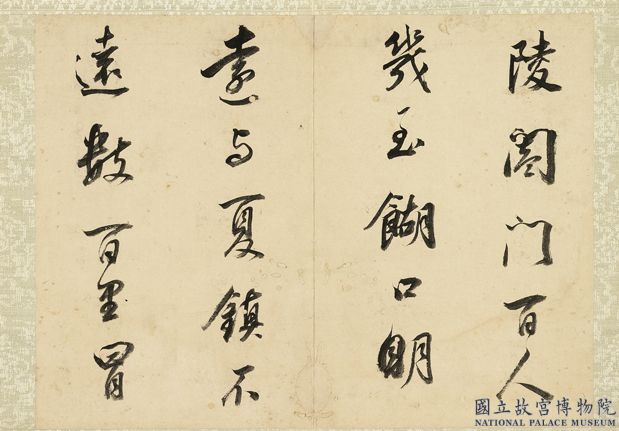 陵闔門百人
幾至餬口明
臺与夏鎮不
遠數百里冒
國立故宮博物院
NATIONAL PALACE MUSEUM